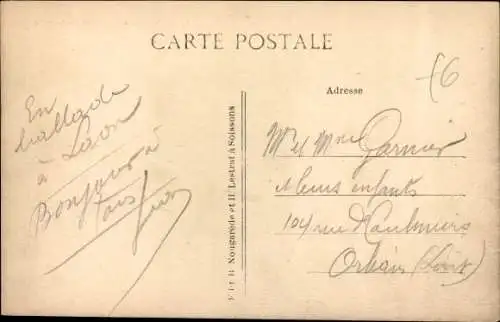 CARTE POSTALE
Adresse
En
ballade
à Laon
Bonjour à
tous
F6
Mr et Mme Garnier
et leurs enfants
104 rue
Orléans (Loiret)
Nougarède et H. Lestrat à Soissons